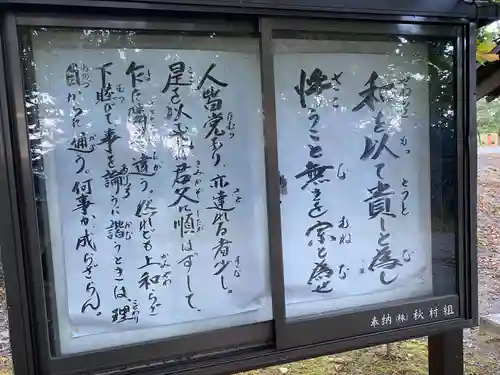 和を以て貴しと為し
忤うこと無きを宗と為せ
人皆党有り、亦達れる者少し。
是を以て或は君父に順はずして、
乍た隣りに違う。然れども上和らぎ
下睦びて事を論ずるに諧うときは理
自からに通う。何事か成らざらん。
奉納(株)秋村組